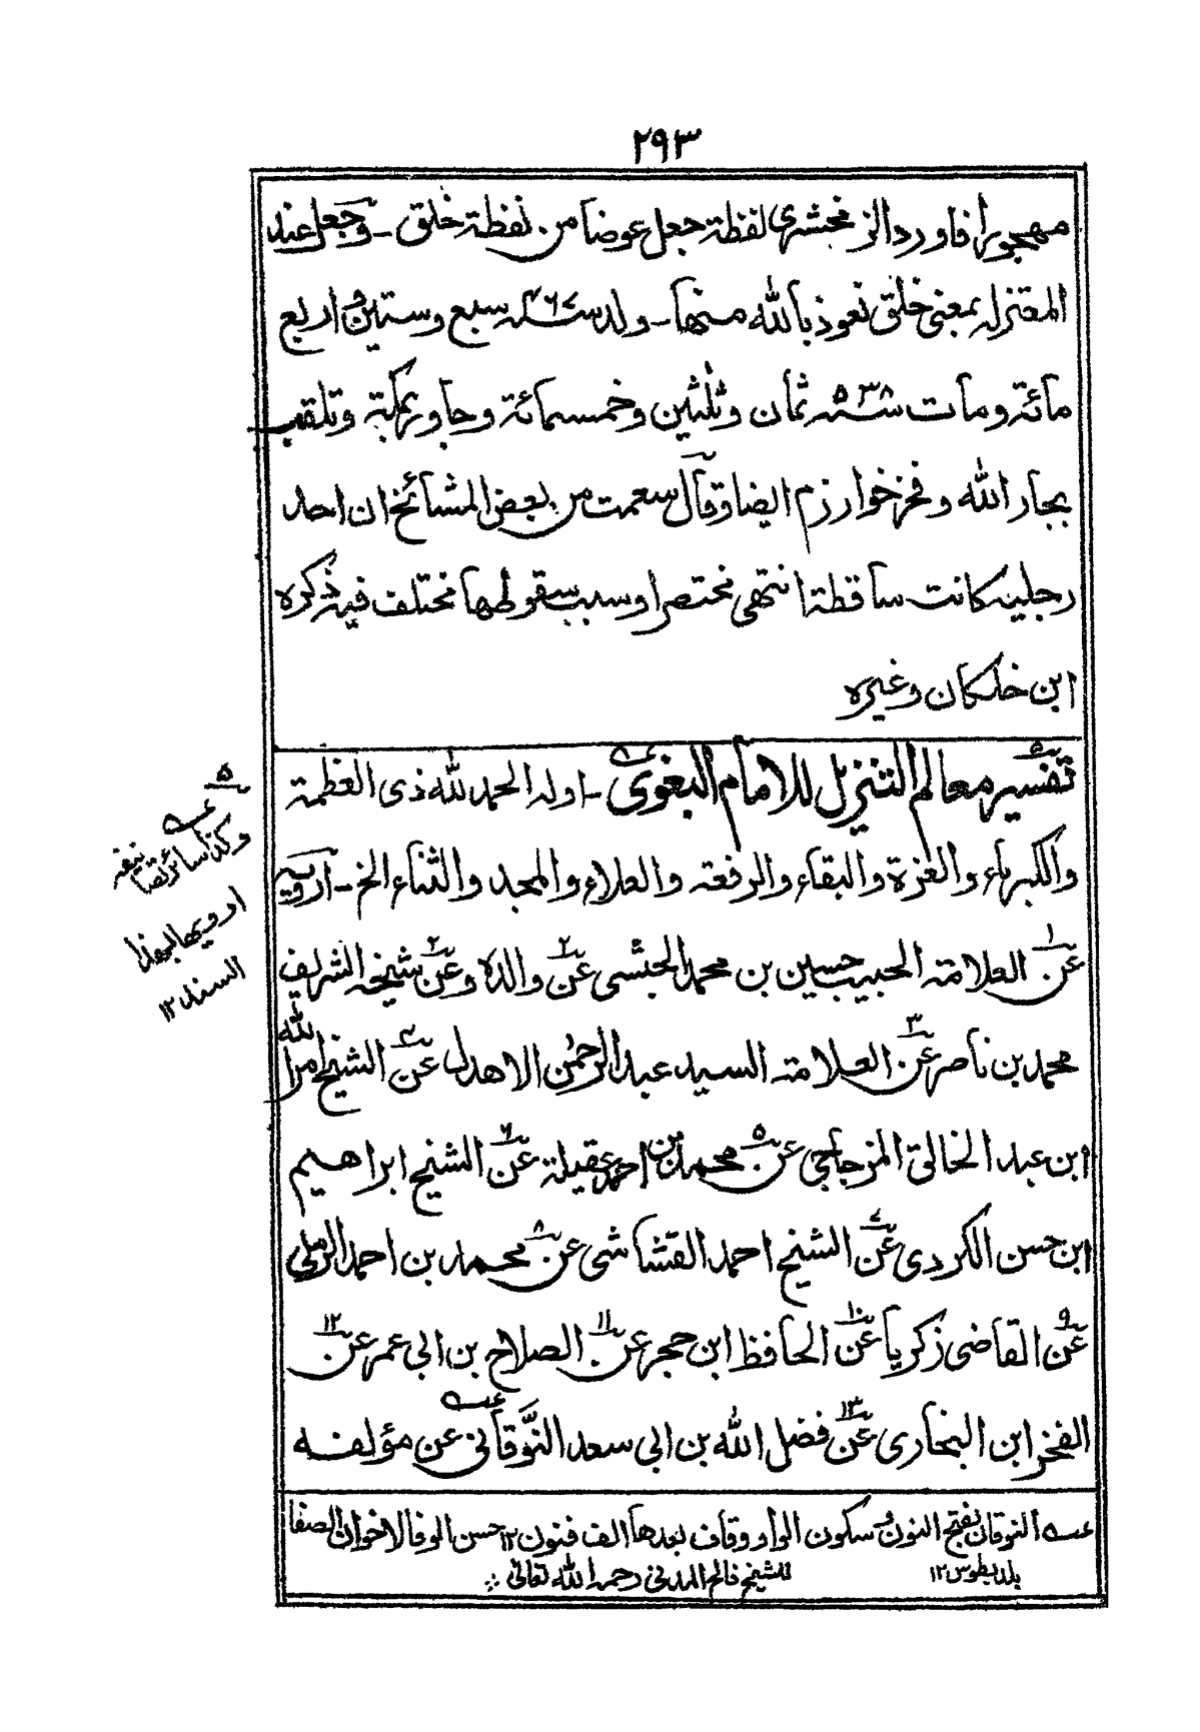 ٢٩٣
مهجورا فاورد الزمخشری لفظة جعل عوضا من لفظة خلق ـ وجعل عند
المعتزلہ بمعنی خلق نعوذ بالله منها ـ ولد سنہ ٤٦٧ سبع وستین واربع
مائة ومات سنہ ٥٣٨ ثمان وثلثین وخمسمائة وجاور بمکة وتلقب
بجار الله وفخر خوارزم ایضا وقال سمعت من بعض المشائخ ان احد
رجلیہ کانت ساقطة انتهی مختصرا وسبب سقوطها مختلف فیہ ذکره
ابن خلکان وغیره
تفسیر معالم التنزیل للامام البغوی ـ اولہ الحمد لله ذی العظمة
والکبریاء والعزة والبقاء والرفعة والعلاء والمجد والثناء الخ ـ ارویہ
عن١ العلامة الحبیب حسین بن محمد الحبشی عن٢ والده وعن٢ شیخہ الشریف
محمد بن ناصر عن٣ العلامة السید عبد الرحمٰن الاهدل عن٤ الشیخ امر الله
ابن عبد الخالق المزجاجی عن٥ محمد بن احمد عقیلة عن٦ الشیخ ابراهیم
ابن حسن الکردی عن٧ الشیخ احمد القشاشی عن٨ محمد بن احمد الرملی
عن٩ القاضی زکریا عن١٠ الحافظ ابن حجر عن١١ الصلاح بن ابی عمر عن١٢
الفخر ابن البخاری عن١٣ فضل الله بن ابی سعد النَّوقانی عن مؤلفہ
عہ النوقان بفتح النون وسکون الواو وقاف بعدها الف فنون ١٢ حسن الوفا لاخوان الصفا
بلد بطوس ١٢ للشیخ فالح المدنی رحمہ الله تعالیٰ
٥
عہ
وکذا سائر تصانیفہ
ارویها بهذا
السند ١٢